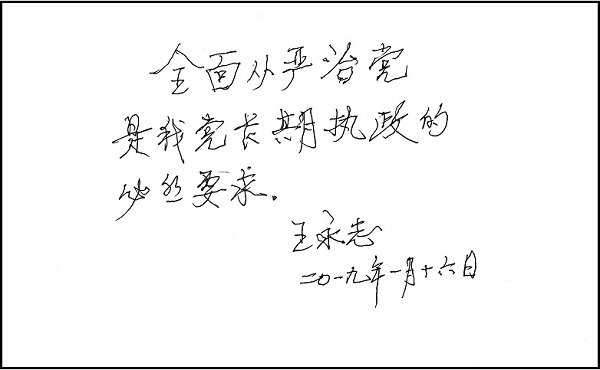 全面从严治党
是我党长期执政的
必然要求.
王永志
二〇一九年一月十六日